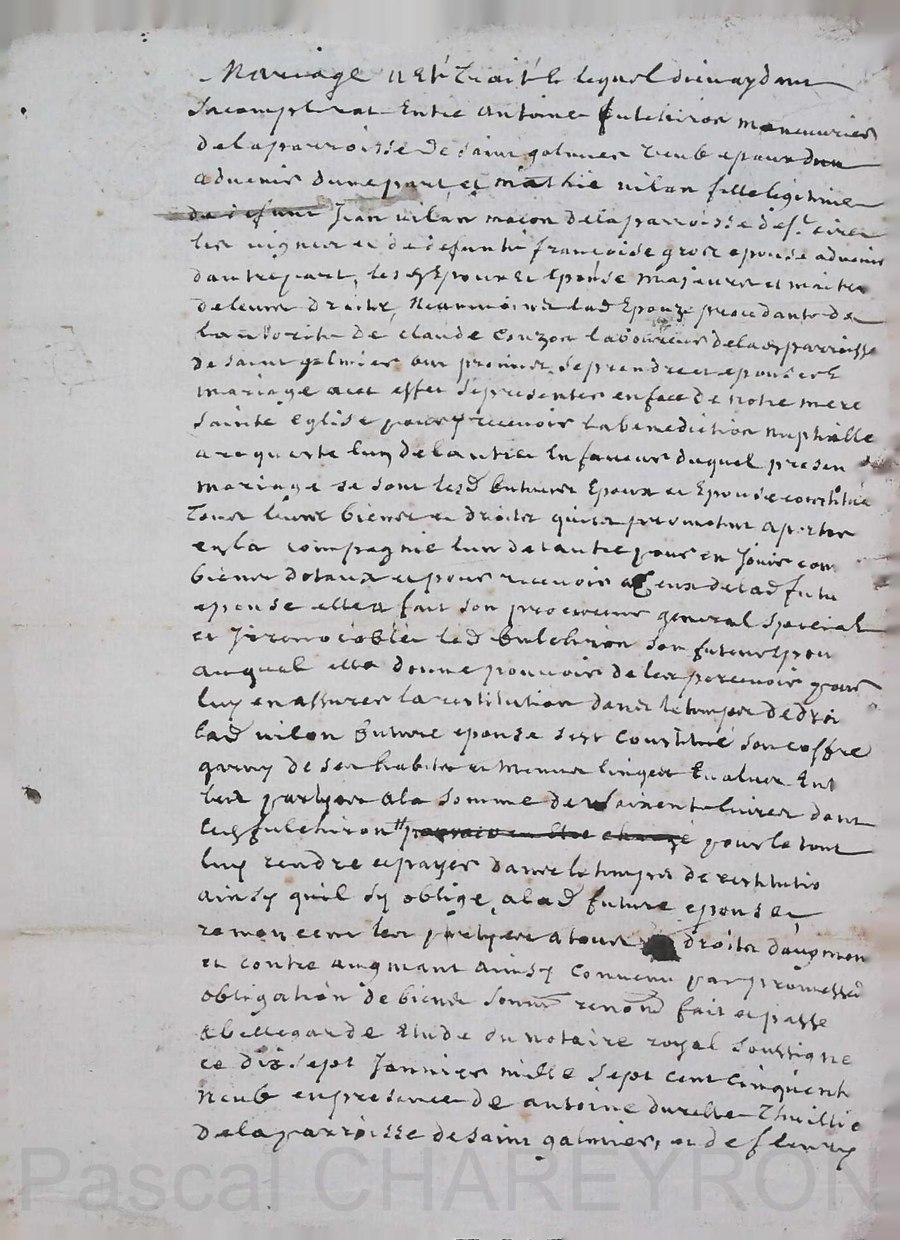 Mariage a Esté Traité lequel dieu aydant
Sacomplirat Entre antoine fulchiron maneuvrier
de la parroisse de saint galmier veuf epoux
advenir dune part et mathie vilan fille legitime
de defunt Jean vilan maçon de la parroisse de st cire
les vignes et de defunte francoise gros epouse advenir
dautre part, lesd Epoux et Epouse majeurs et maitre
de leurs droits, neanmoins lad Epouze procedante de
lautorité de claude couzon laboureur de lad parroisse
de saint galmier ont promis se prendre et epouser E
mariage a cet effet se presenter en face de notre mere
sainte eglise pour y recevoir la benediction nuptialle
a requeste lun de lautre En faveur duquel presen
mariage se sont lesd futurs Epoux et Epouse constitué
Tous leurs biens et droits quils promettent aporter
en la compagnie lun de lautre pour en Jouir com
biens dotaux et pour recevoir ceux de lad futu
epouse elle a fait son procureur general special
et Jrrevocable led fulchiron son futur epou
auquel elle donne pouvoir de les percevoir pour
luy en assurer la restitution dans le temps de droi
lad vilan future epouse sest constitué son coffre
garny de ses habits et menus linges Evalues Ent
les partyes a la somme de soixente livres dont
led fulchiron pour le tout
luy rendre et payer dans le temps de restitutio
ainsy quil sy oblige a lad future epouse
renoncent les partyes a tous droits daugmen
et contre augmant ainsy convenu par promesse
obligation de biens soum renon fait et passe
a bellegarde Etude du notaire royal soussigne
ce dix sept Janvier mille sept cent cinquente
neuf en presence de antoine Thuillie
de la parroisse de saint galmier, et de fleury
Pascal CHAREYRON